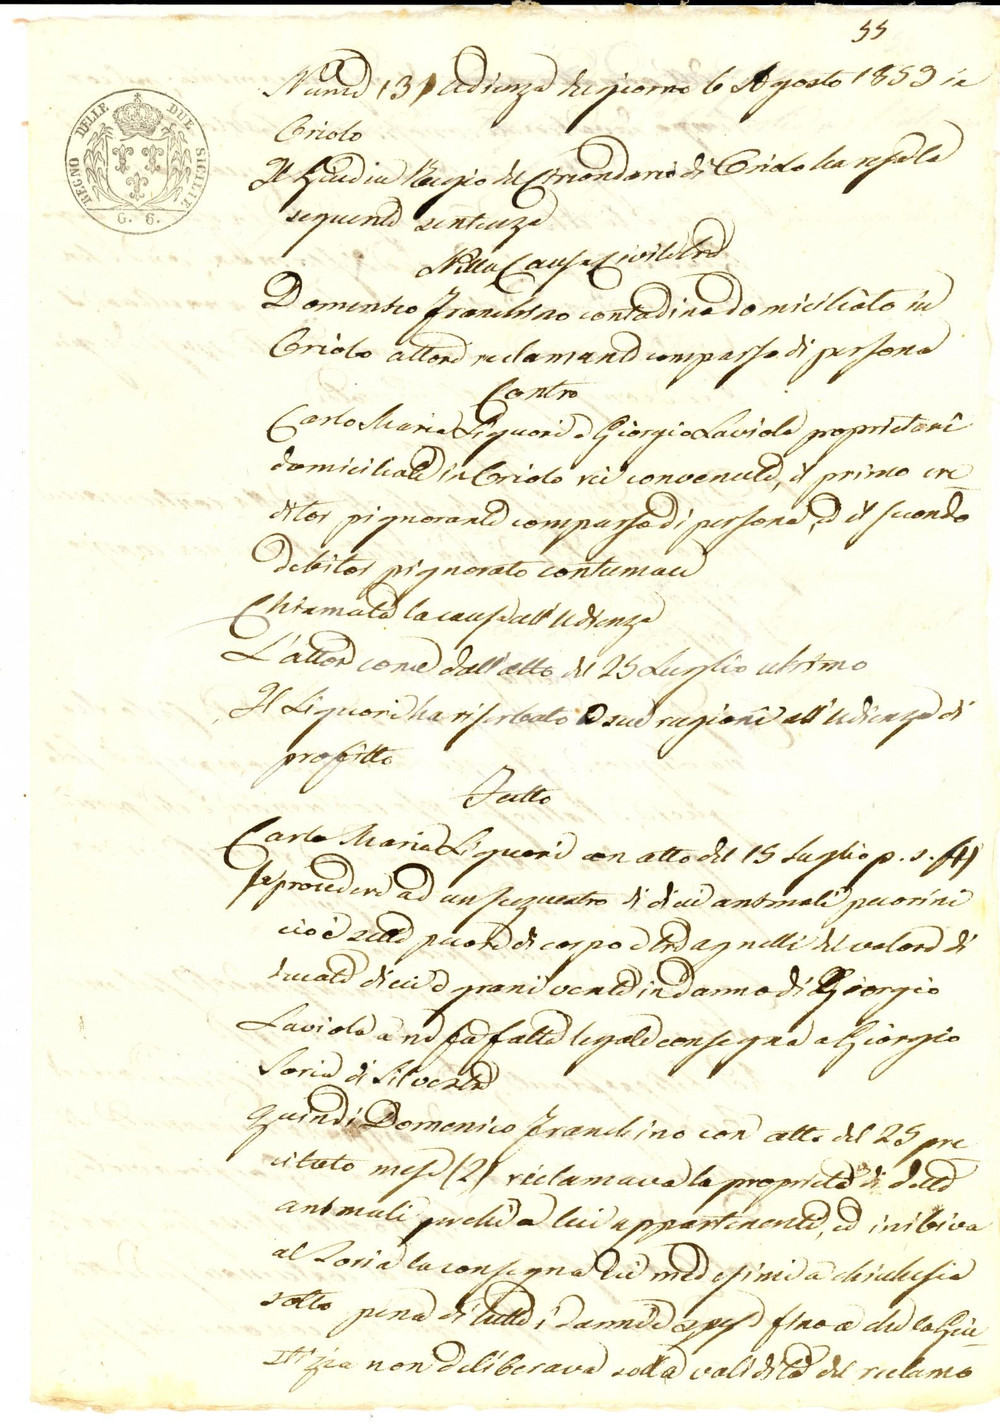 55
REGNO DELLE DUE SICILIE
G. 6.
Num.° 131 udienza del giorno 6 Agosto 1853 in
Oriolo
Il Giudice Regio del Circondario di Oriolo ha resa la
seguente sentenza
Nella Causa Civile tra
Domenico Franchino contadino domiciliato in
Oriolo attore reclamante comparso di persona
Contro
Carlo Maria Liguori e Giorgio Laviola proprietarî
domiciliati in Oriolo rei convenuti, il primo cre
ditor pignorante comparso di persona, ed il secondo
debitor pignorato contumace
Chiamata la causa all'udienza
L'attore come dall'atto del 25 Luglio ultimo
Il Liguori ha riserbato sue ragioni all'udienza di
profitto
Fatto
Carlo Maria Liguori con atto del 15 Luglio p. s. (1)
fe procedere ad un sequestro di dieci animali pecorini
cioè sette pecore di corpo e tre agnelli del valore di
ducati dieci e grani venti in danno di Giorgio
Laviola e ne fu fatta legale consegna a Giorgio
Soria di Silvestre
Quindi Domenico Franchino con atto del 25 pre
citato mese (2) reclamava la proprietà di detti
animali perchè a lui appartenenti, ed inibiva
al Soria la consegna dei medesimi a chichesia
sotto pena di tutti i danni e spese fino a che la Giu
stizia non deliberava sulla validità del reclamo